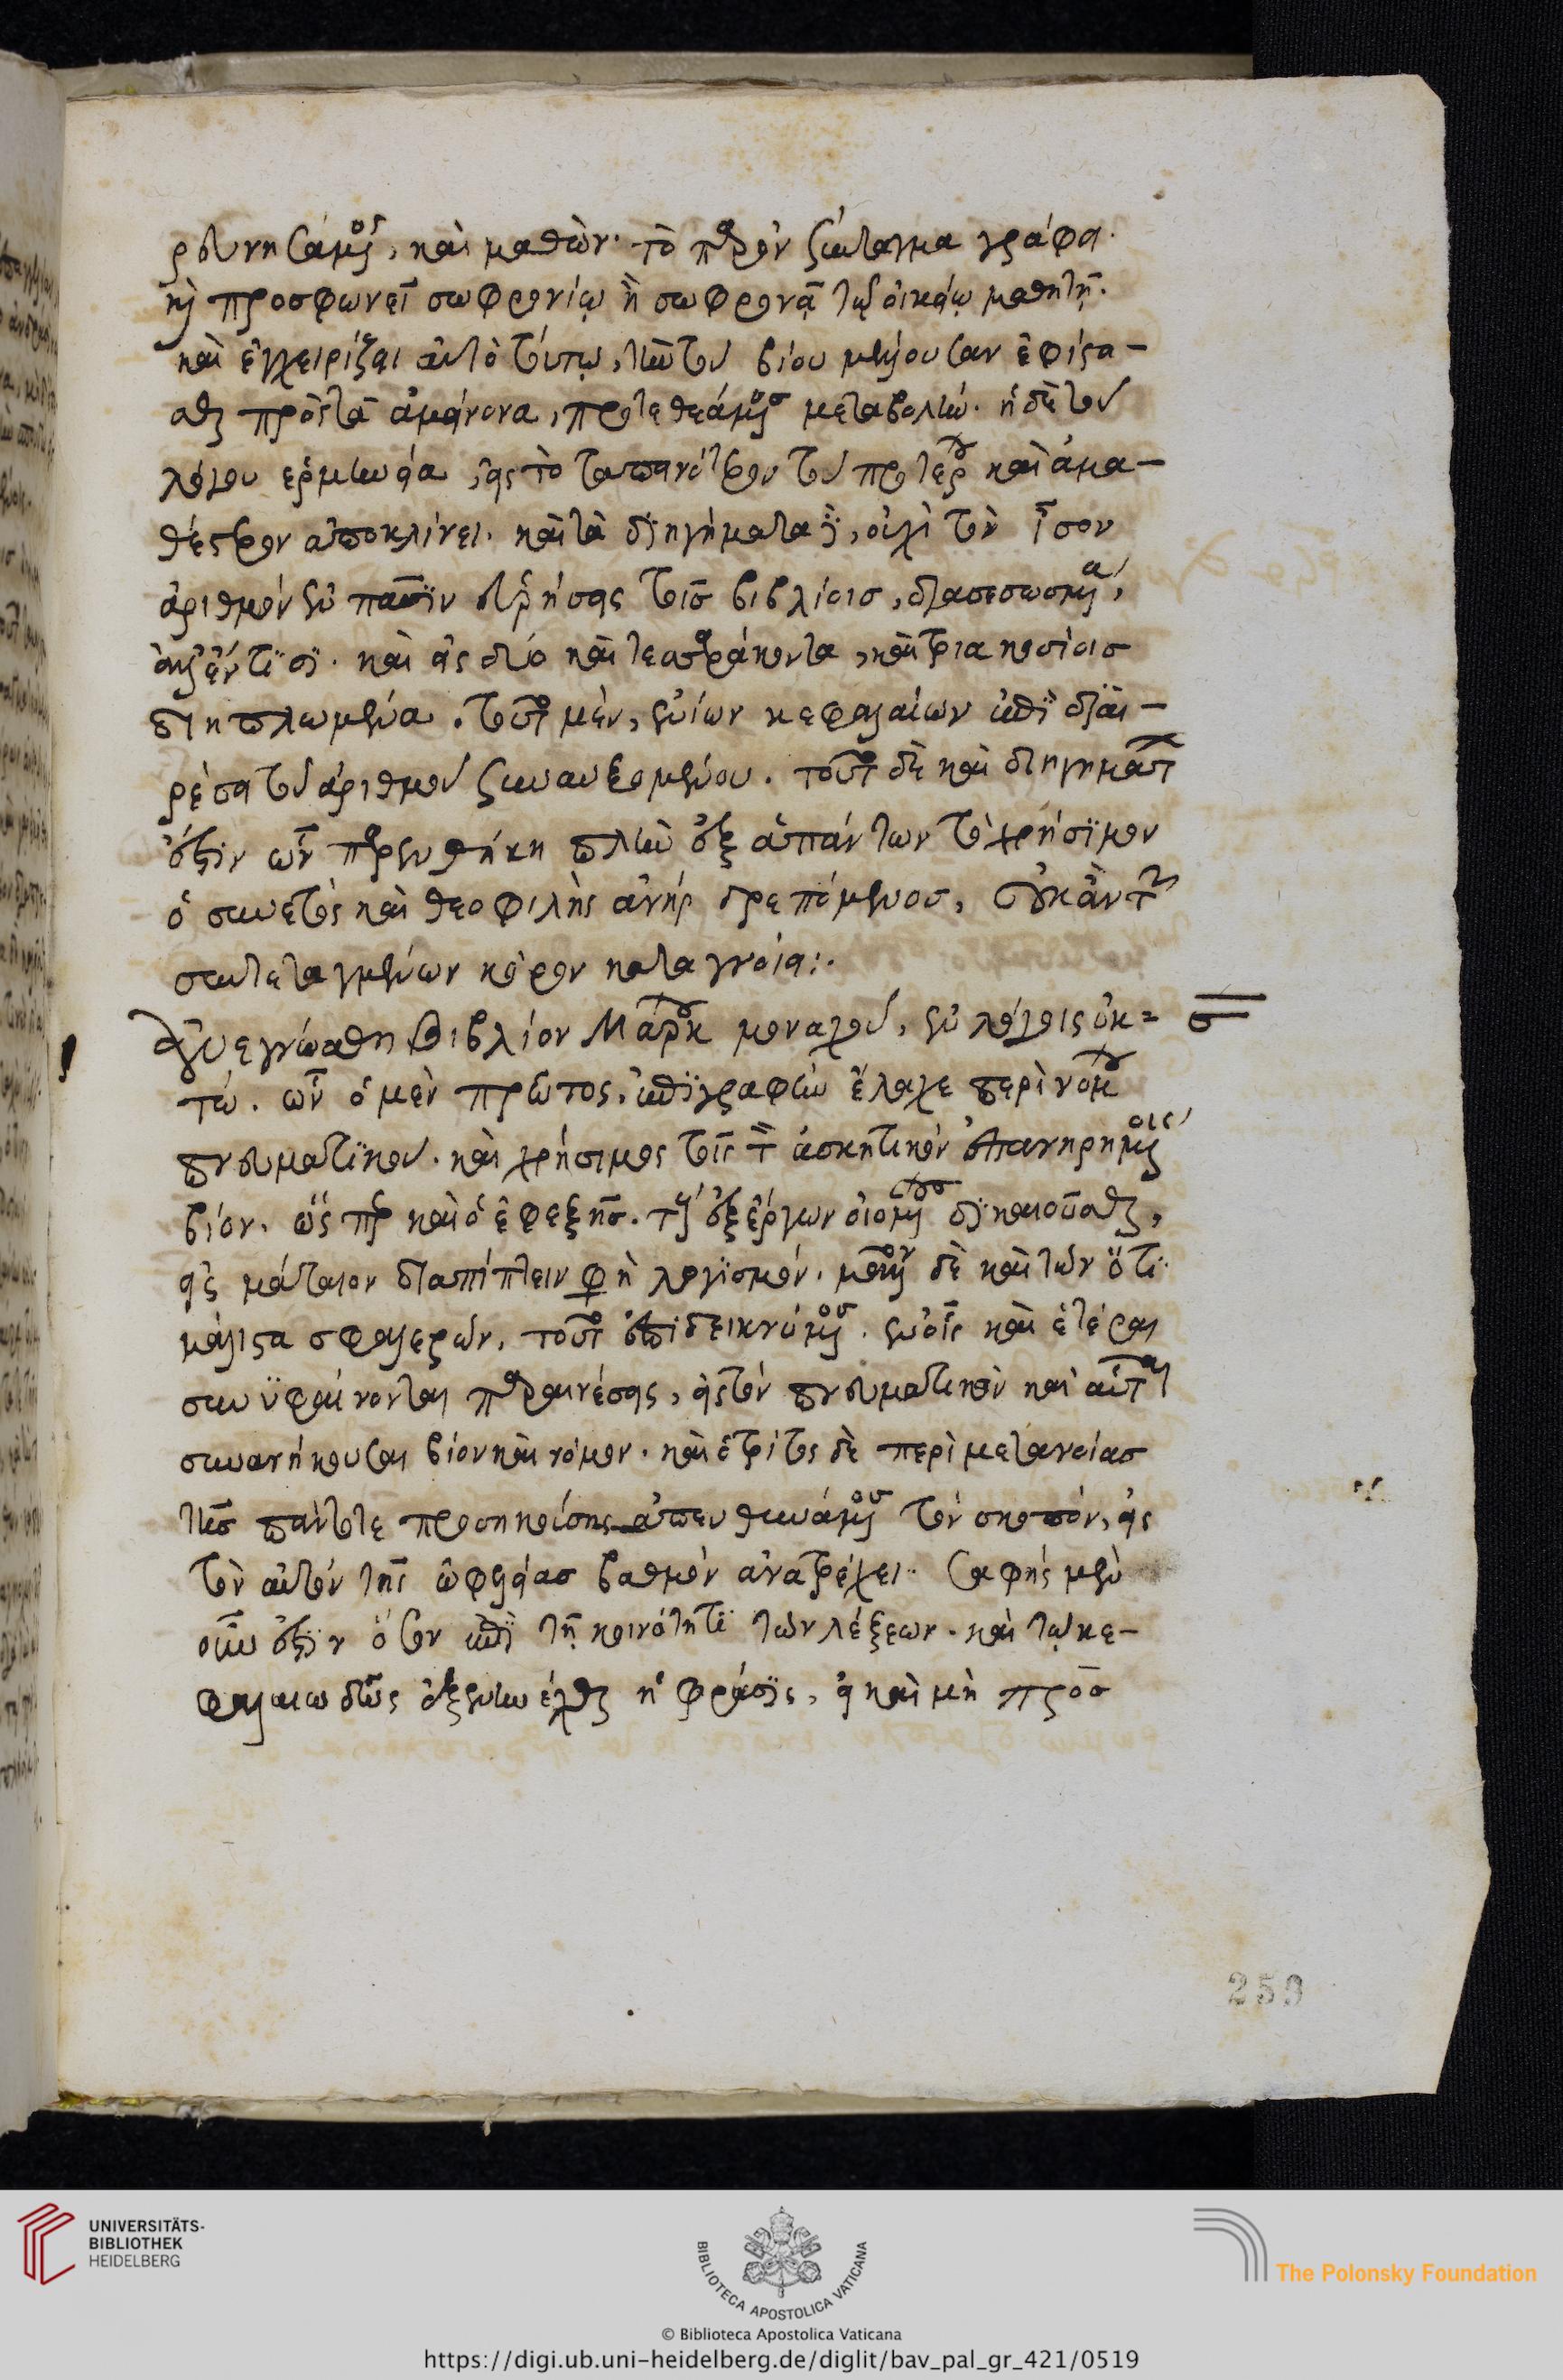 ρευνησάμενος, καὶ μαθὼν· τὸ παρὸν σύνταγμα γράφει·
καὶ προσφωνεῖ σωφρονίῳ ἢ σωφρονᾷ τῷ οἰκείῳ μαθητῇ·
καὶ ἐγχειρίζει αὐτὸ τούτῳ, τὴν τοῦ βίου μέλλουσαν ἐφίστα–
σθαι πρὸς τὰ ἀμείνονα, προτεθεαμένος μεταβολήν. ἡ δὲ τοῦ
λόγου ἑρμηνεία, εἰς τὸ ταπεινότερον τοῦ προτέρου καὶ ἀμα–
θέστερον ἀποκλίνει. καὶ τὰ διηγήματα δὲ, οὐχὶ τὸν ἴσον
ἀριθμὸν ἐν πᾶσιν εὑρήσεις τοῖς βιβλίοις, διασεσωσμένα,
ἀλλ' ἔν τισι. καὶ εἰς δύο καὶ τεσσαράκοντα, καὶ τριακοσίοις
διηπλωμένα. τοῦτο μὲν, ἐνίων κεφαλαίων ἐπιδιαι–
ρέσει τοῦ ἀριθμοῦ συναυξομένου. τοῦτο δὲ καὶ διηγημάτων
ἔστιν ὧν παρενθήκη πλὴν ἐξ ἁπάντων τὸ χρήσιμον
ὁ συνετὸς καὶ θεοφιλὴς ἀνὴρ δρεπόμενος, οὐκ ἂν τῶν
συντεταγμένων κόρον καταγνοίη:.
Ἀνεγνώσθη βιβλίον Μάρκου μοναχοῦ, ἐν λόγοις ὀκ= σ
τώ. ὧν ὁ μὲν πρῶτος, ἐπιγραφὴν ἔλαχε περὶ νόμου
πνευματικοῦ. καὶ χρήσιμος τοῖς τὸν ἀσκητικὸν ἐπανῃρημένοις
βίον. ὥσπερ καὶ ὁ ἐφεξῆς. τῆς ἐξ ἔργων οἰομένους δικαιοῦσθαι,
εἰς μάταιον διαπίπτειν φησὶ λογισμόν. μόνον δὲ καὶ τῶν ὅτι
μάλιστα σφαλερῶν, τοῦτο ἐπιδεικνύμενος. ἐν οἷς καὶ ἑτέραι
συνυφαίνονται παραινέσεις, εἰς τὸν πνευματικὸν καὶ αὗται
συνανήκουσαι βίον καὶ νόμον. καὶ ὁ τρίτος δὲ περὶ μετανοίας
τῆς πάντοτε προσηκούσης ἀπευθυνάμενος τὸν σκοπὸν, εἰς
τὸν αὐτὸν τῆς ὠφελείας βαθμὸν ἀνατρέχει. σαφὴς μὲν
οὖν ἐστὶν ὅσον ἐπὶ τῇ κοινότητι τῶν λέξεων. καὶ τῷ κε–
φαλαιωδῶς ἐξενηνέχθαι ἡ φράσις, εἰ καὶ μὴ πρὸς
259
UNIVERSITÄTS-
BIBLIOTHEK
HEIDELBERG
BIBLIOTECA APOSTOLICA VATICANA
The Polonsky Foundation
© Biblioteca Apostolica Vaticana
https://digi.ub.uni-heidelberg.de/diglit/bav_pal_gr_421/0519